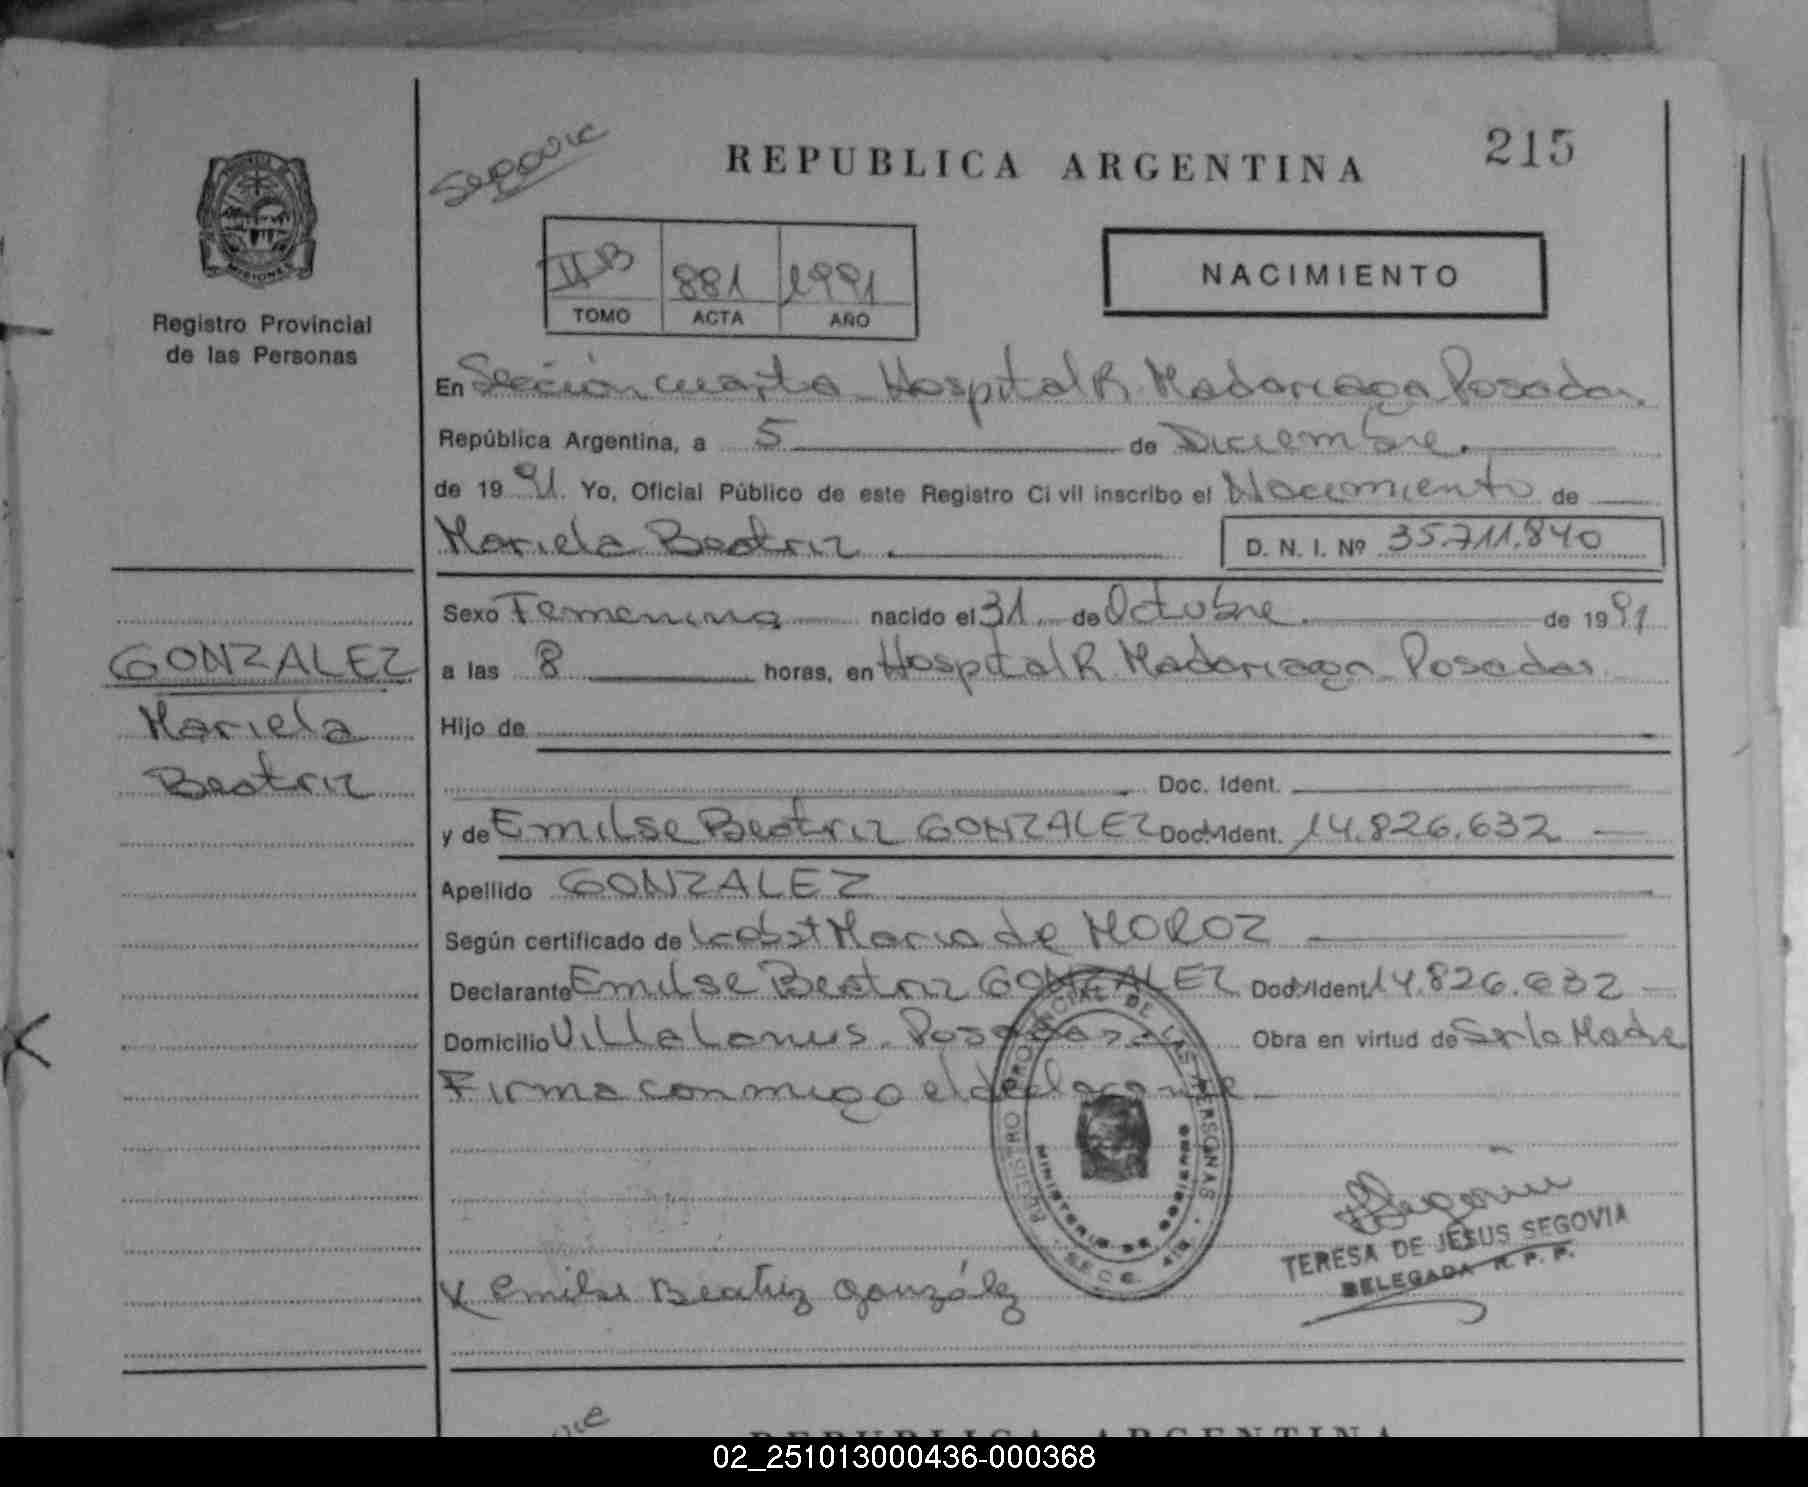 215
REPUBLICA ARGENTINA
MISIONES
NACIMIENTO
II B 881 1991
TOMO ACTA AÑO
Registro Provincial
de las Personas
En Sección cuarta Hospital R. Madariaga Posadas
República Argentina, a 5 de Diciembre.
de 1991. Yo, Oficial Público de este Registro Civil inscribo el Nacimiento de
Mariela Beatriz D. N. I. Nº 35.711.840
Sexo Femenino nacido el 31 de Octubre de 1991
GONZALEZ
Mariela
Beatriz
a las 8 horas, en Hospital R. Madariaga Posadas
Hijo de
Doc. Ident.
y de Emilse Beatriz GONZALEZ Doc. Ident. 14.826.632
Apellido GONZALEZ
Según certificado de Maria de MOROZ
Declarante Emilse Beatriz GONZALEZ Doc. Ident. 14.826.632
Domicilio Villa Lanus. Posadas Obra en virtud de Ser la Madre
Firma conmigo el declarante
REGISTRO PROVINCIAL DE LAS PERSONAS
MINISTERIO DE GOBIERNO
TERESA DE JESUS SEGOVIA
DELEGADA R. P. P.
X Emilse Beatriz González
REPUBLICA ARGENTINA
02_251013000436-000368